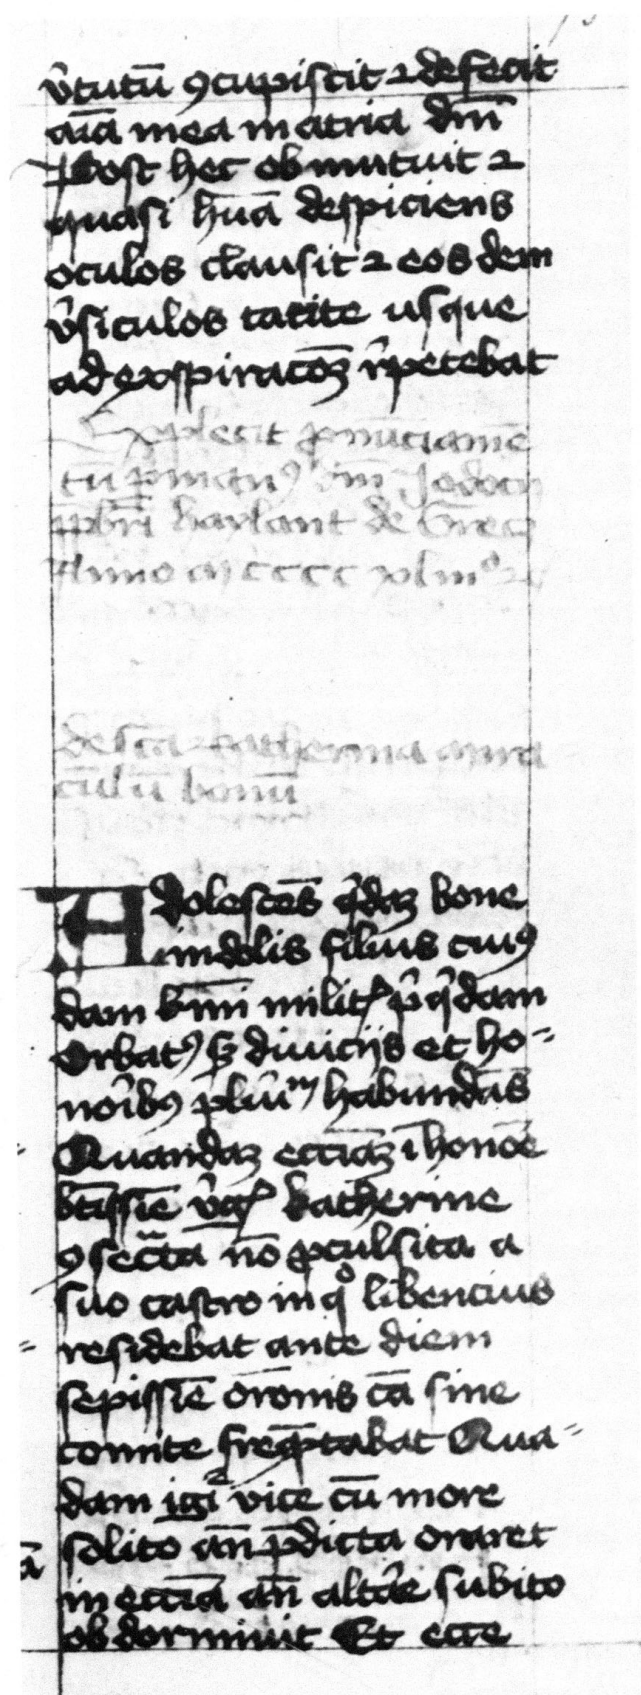 v̉tutū ꝯcupiscit ⁊ defecit
aīa mea in atria dn̄i
Post hec obmutuit ⁊
quasi hūa despiciens
oculos clausit ⁊ eosdem
v̉siculos tacite usque
ad expiracōꝫ r̉petebat
Explicit
tū ꝑ manꝰ dn̄i Jodoci
p̄pbr̄i haylant de
Anno m cccc xliiiº
de sc̄a katherina mira
culū bonū
Adolescēs q̉daꝫ bone
indolis filius cuiꝰ
dam b̄nī milit̉ p̉ q̉dam
Orbatꝰ sꝫ diuicijs et ho⸗
nōibꝰ pl̉im̄ habundās
Quandaꝫ eccīaꝫ ī honoē
btīssīe v̉gīs katherine
ꝯsecͣta nō ꝓcul sita a
suo castro in qͦ libencius
residebat ante diem
sepissīe orōnis cā sine
comite freq̄ntabat Qua⸗
dam igͥ vice cū more
solito an̄ p̄dicta oraret
in eccīa an̄ altāe subito
obdormiuit Et ecce